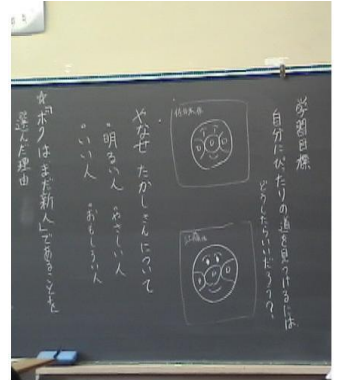 学習目標
自分にぴったりの道を見つけるには
どうしたらいいだろう?
やなせ たかしさんについて
・明るい人 ・やさしい人
・いい人 ・おもしろい人
☆「ボクはまだ新人」であることを
選んだ理由